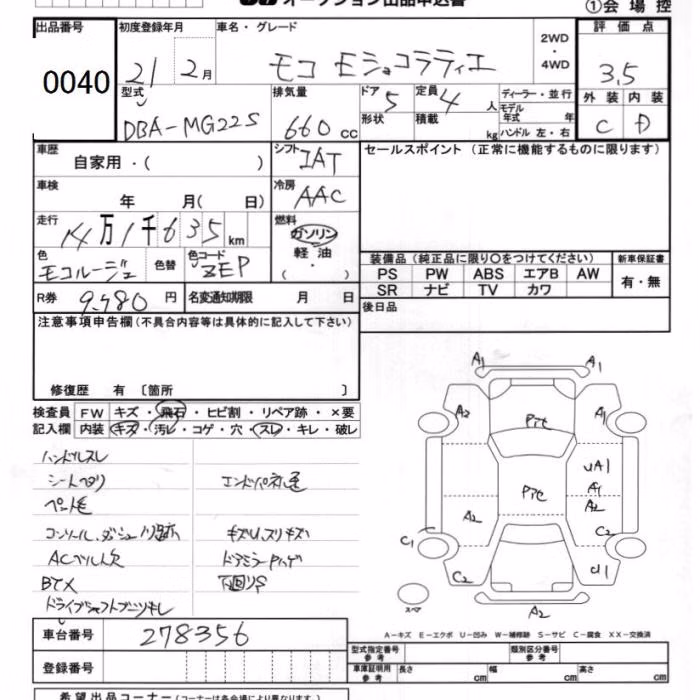 オークション出品申込書
①会場控
出品番号 初度登録年月 車名・グレード 評価点
0040 21 2月 モコ Eショコラティエ 2WD ・ 4WD 3.5
型式 排気量 ドア 定員 ディーラー・並行 外装 内装
DBA-MG22S 660cc 5 4人 モデル年式 年 C D
形状 積載 kg ハンドル 左・右
車歴 自家用・( ) シフト IAT セールスポイント(正常に機能するものに限ります)
車検 年 月( 日) 冷房 AAC
走行 14万1千635km 燃料 ガソリン
軽油
( ・ )
色 モコルージュ 色替 色コード ZEP
装備品(純正品に限り〇をつけてください) 新車保証書
PS PW ABS エアB AW 有・無
SR ナビ TV カワ
R券 9,480円 名変通知期限 月 日 後日品
注意事項申告欄(不具合内容等は具体的に記入して下さい)
修復歴 有 〔箇所 〕
検査員 FW キズ・飛石・ヒビ割・リペア跡・×要
記入欄 内装 キズ・汚レ・コゲ・穴・スレ・キレ・破レ
ハンドルスレ
シートヘタリ エンドパネル歪
コンソール、ダッシュノリ跡 キズU、スリキズ
ACベルト欠 ドアミラーPハゲ
BTX 下回りS
ドライブシャフトブーツキレ
A1 A1
A2 Pとc A1
UA1
Pとc A1
A2 A2
C1 C2
C2 U1
スペア A2
A-キズ E-エクボ U-凹み W-補修跡 S-サビ C-腐食 XX-交換済
車台番号 278356
登録番号
型式指定番号 参考 類別区分番号 参考
車庫証明用 参考 長さ cm 幅 cm 高さ cm
希望出品コーナー(コーナーは各会場により異なります。)